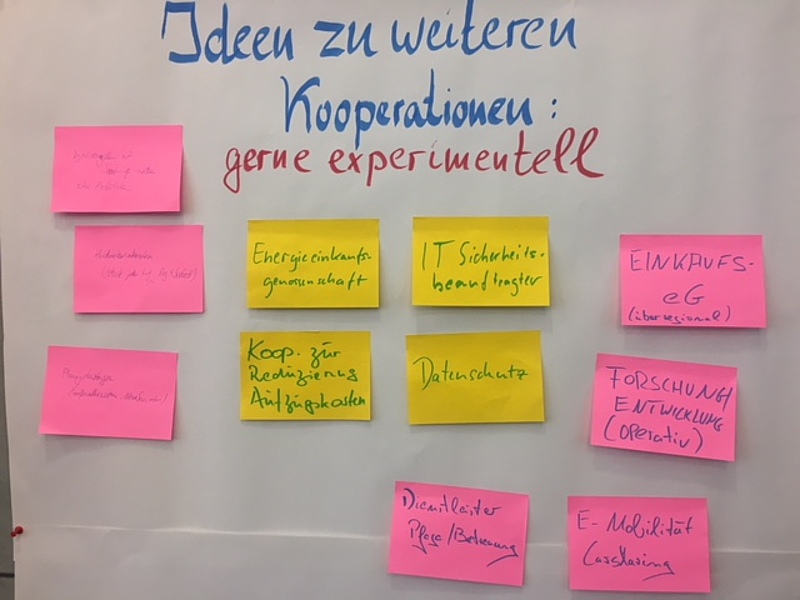 Ideen zu weiteren
Kooperationen:
gerne experimentell
Energieeinkaufs-
genossenschaft
IT Sicherheits-
beauftragter
EINKAUFS-
eG
(überregional)
Koop. zur
Reduzierung
Aufzugskosten
Datenschutz
FORSCHUNG/
ENTWICKLUNG
(operativ)
Dienstleister
Pflege/Betreuung
E-Mobilität
Carsharing